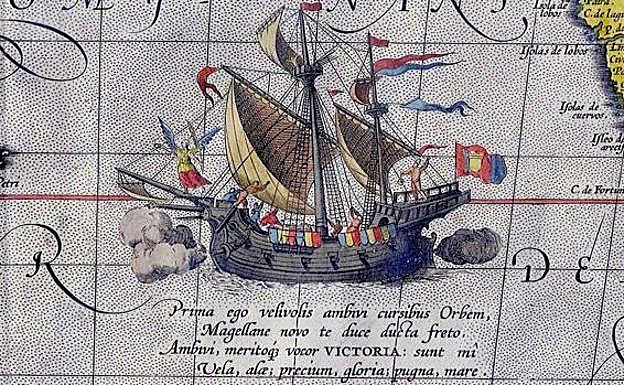 Isola de lobos
C. de lagu
Isolas de lobos
Isolas de cuervos.
C. de Fortun
R DE
Prima ego velivolis ambivi cursibus Orbem,
Magellane novo te duce ducta freto.
Ambivi, meritoq; vocor VICTORIA: sunt mî
Vela, alæ; precium, gloria; pugna, mare.